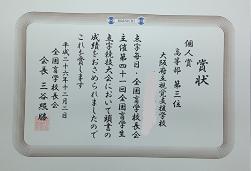 賞状
個人賞
高等部 第三位
大阪府立視覚支援学校
点字毎日・全国盲学校長会
主催第四十一回全国盲学生
点字競技大会において頭書の
成績をおさめられましたので
これを賞します
平成二十六年十二月二日
全国盲学校長会
会長 三谷照勝